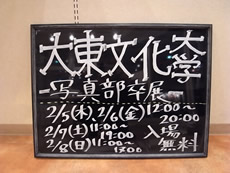 大東文化大学
写真部卒展
2/5(木)、2/6(金) 12:00〜20:00
2/7(土) 11:00〜19:00
2/8(日) 11:00〜17:00
入場無料